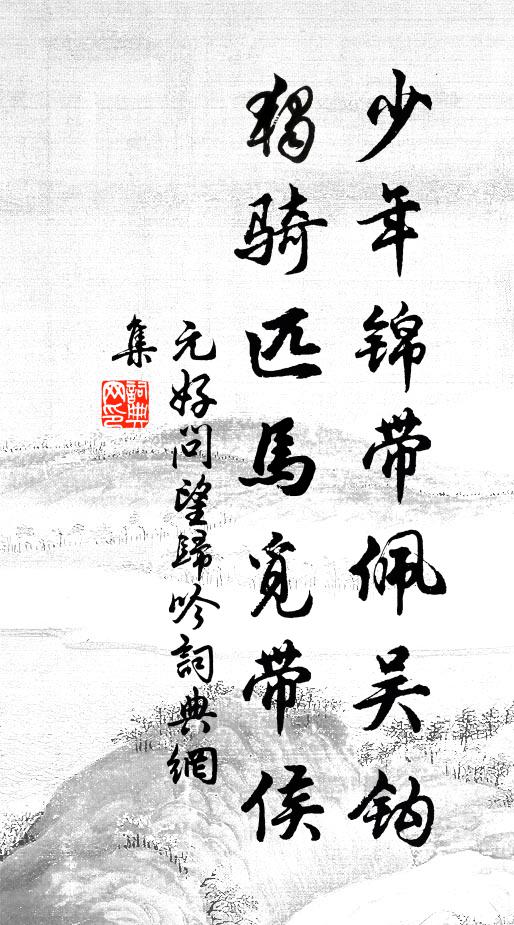 少年锦带佩吴钩
独骑匹马觅带侯
元好问望歸吟詞典網
集
詞典網印